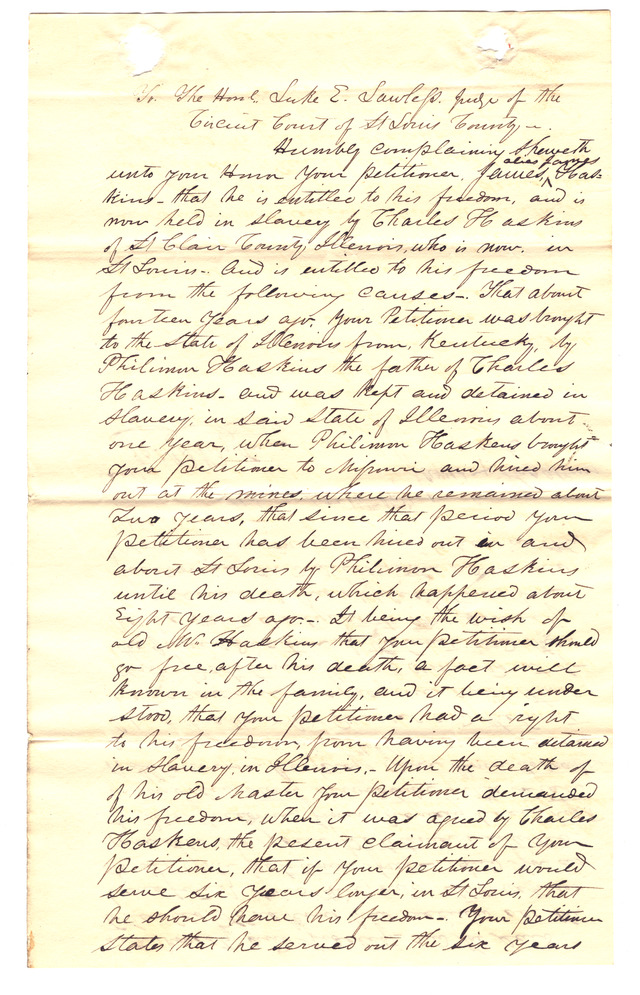 To. The Honl. Luke E. Lawless. Judge of the
Circuit Court of St Louis County -.
Humbly complaining sheweth
unto your Honor your petitioner, James, alias James Has-
kins - that he is entitled to his freedom, and is
now held in slavery by Charles Haskins
of St Clair County Illenois, who is now. in
St Louis -. And is entitled to his freedom
from the following causes -. That about
fourteen years ago. Your Petitioner was brought
to the State of Illenois from, Kentucky, by
Philimon Haskins the father of Charles
Haskins - and was kept and detained in
slavery, in said State of Illenois about
one year, when Philimon Haskens brought
your petitioner to Missouri and hired him
out at the mines, where he remained about
Two years, that since that period your
petitioner has been hired out in and
about St Louis by Philimon Haskins
until his death, which happened about
Eight years ago -. It being the wish of
old Mr. Haskins that your petitioner should
go free, after his death, a fact well
known in the family, and it being under
stood, that your petitioner had a right
to his freedom, from having been detained
in slavery, in Illenois, - Upon the death of
of his old Master your petitioner demanded
his freedom, when it was agreed by Charles
Haskens, the pesent claimant of your
petitioner, that if your petitioner would
serve six years longer, in St Louis, that
he should have his freedom -. Your petitioner
states that he served out the six years